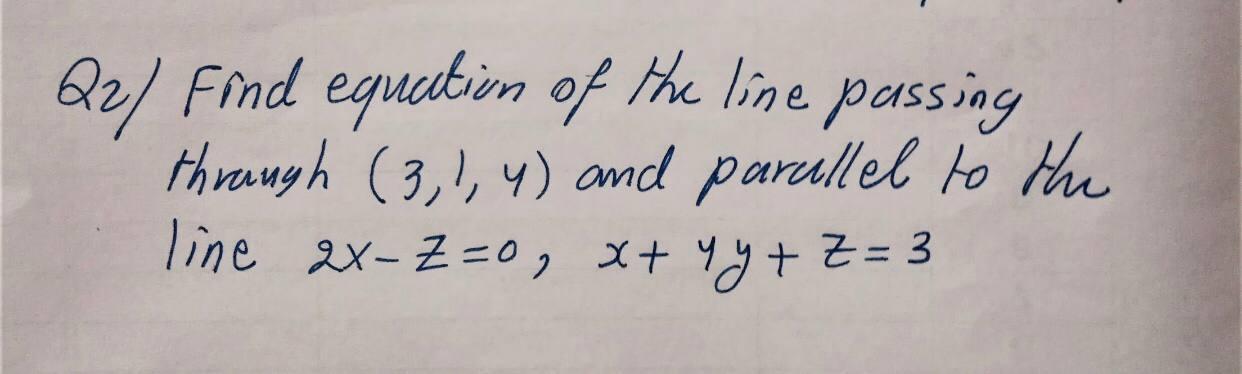 Q2/ Find equation of the line passing
through (3,1,4) and parallel to the
line 2x-z=0, x+4y+z=3